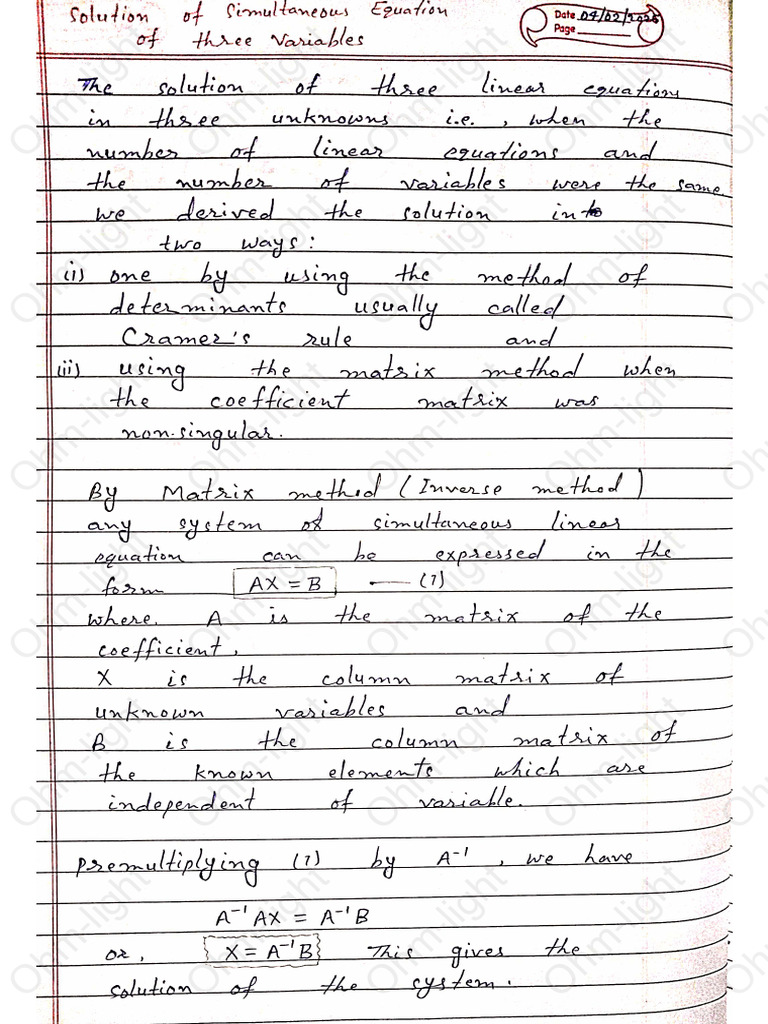 Solution of Simultaneous Equation
of three Variables
Date 04/02/2025
Page
The solution of three linear equations
in three unknowns i.e., when the
number of linear equations and
the number of variables were the same
we derived the solution into
two ways:
(i) one by using the method of
determinants usually called
Cramer's rule and
(ii) using the matrix method when
the coefficient matrix was
non-singular.
By Matrix method (Inverse method)
any system of simultaneous linear
equation can be expressed in the
form AX = B —— (1)
where. A is the matrix of the
coefficient,
X is the column matrix of
unknown variables and
B is the column matrix of
the known elements which are
independent of variable.
Premultiplying (1) by A⁻¹, we have
A⁻¹AX = A⁻¹B
or, X = A⁻¹B This gives the
solution of the system.
Ohm-light